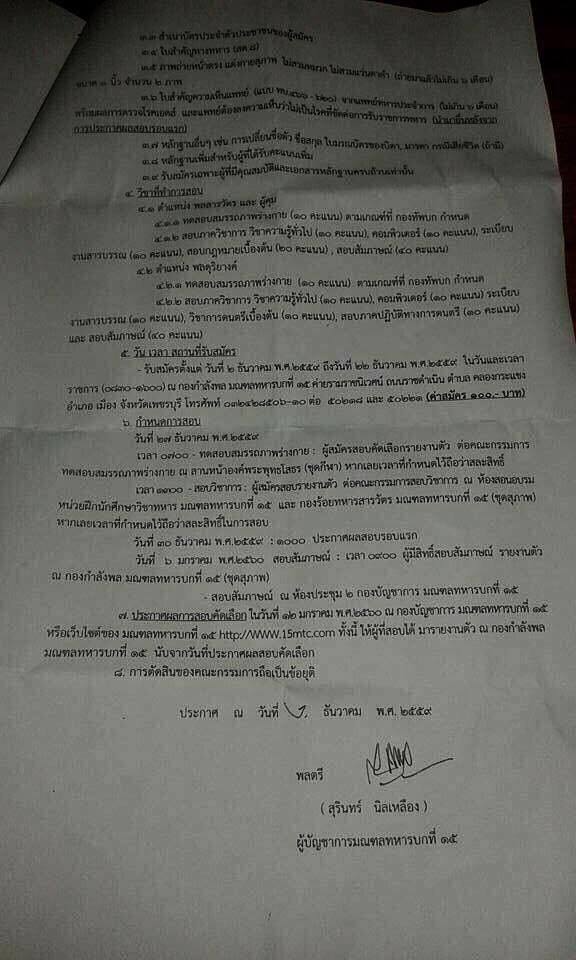 ๓.๓ สำเนาบัตรประจำตัวประชาชนของผู้สมัคร
๓.๔ ใบสำคัญทางทหาร (สด.๘)
๓.๕ ภาพถ่ายหน้าตรง แต่งกายสุภาพ ไม่สวมหมวก ไม่สวมแว่นตาดำ (ถ่ายมาแล้วไม่เกิน ๖ เดือน)
ขนาด ๑ นิ้ว จำนวน ๒ ภาพ
๓.๖ ใบสำคัญความเห็นแพทย์ (แบบ ทบ.๔๖๖ - ๖๒๐) จากแพทย์ทหารประจำการ (ไม่เกิน ๖ เดือน)
พร้อมผลการตรวจโรคเอดส์ และแพทย์ต้องลงความเห็นว่าไม่เป็นโรคที่ขัดต่อการรับราชการทหาร (นำมายื่นหลังจาก
การประกาศผลสอบรอบแรก)
๓.๗ หลักฐานอื่นๆ เช่น การเปลี่ยนชื่อตัว ชื่อสกุล ใบมรณบัตรของบิดา, มารดา กรณีเสียชีวิต (ถ้ามี)
๓.๘ หลักฐานเพิ่มสำหรับผู้ที่ได้รับคะแนนเพิ่ม
๓.๙ รับสมัครเฉพาะผู้ที่มีคุณสมบัติและเอกสารหลักฐานครบถ้วนเท่านั้น
๔. วิชาที่ทำการสอบ
๔.๑ ตำแหน่ง พลสารวัตร และ ผู้คุม
๔.๑.๑ ทดสอบสมรรถภาพร่างกาย (๑๐ คะแนน) ตามเกณฑ์ที่ กองทัพบก กำหนด
๔.๑.๒ สอบภาควิชาการ วิชาความรู้ทั่วไป (๑๐ คะแนน), คอมพิวเตอร์ (๑๐ คะแนน), ระเบียบ
งานสารบรรณ (๑๐ คะแนน), สอบกฎหมายเบื้องต้น (๒๐ คะแนน) , สอบสัมภาษณ์ (๔๐ คะแนน)
๔.๒ ตำแหน่ง พลดุริยางค์
๔.๒.๑ ทดสอบสมรรถภาพร่างกาย (๑๐ คะแนน) ตามเกณฑ์ที่ กองทัพบก กำหนด
๔.๒.๒ สอบภาควิชาการ วิชาความรู้ทั่วไป (๑๐ คะแนน), คอมพิวเตอร์ (๑๐ คะแนน) ระเบียบ
งานสารบรรณ (๑๐ คะแนน), วิชาการดนตรีเบื้องต้น (๑๐ คะแนน), สอบภาคปฏิบัติทางการดนตรี (๑๐ คะแนน)
และ สอบสัมภาษณ์ (๔๐ คะแนน)
๕. วัน เวลา สถานที่รับสมัคร
- รับสมัครตั้งแต่ วันที่ ๒ ธันวาคม พ.ศ.๒๕๕๙ ถึงวันที่ ๒๒ ธันวาคม พ.ศ.๒๕๕๙ ในวันและเวลา
ราชการ (๐๘๓๐-๑๖๐๐) ณ กองกำลังพล มณฑลทหารบกที่ ๑๕ ค่ายรามราชนิเวศน์ ถนนราชดำเนิน ตำบล คลองกระแชง
อำเภอ เมือง จังหวัดเพชรบุรี โทรศัพท์ ๐๓๒๔๒๘๕๐๖-๑๐ ต่อ ๕๐๒๑๘ และ ๕๐๒๒๑ (ค่าสมัคร ๑๐๐.- บาท)
๖. กำหนดการสอบ
วันที่ ๒๗ ธันวาคม พ.ศ.๒๕๕๙
เวลา ๐๗๐๐ - ทดสอบสมรรถภาพร่างกาย : ผู้สมัครสอบคัดเลือกรายงานตัว ต่อคณะกรรมการ
ทดสอบสมรรถภาพร่างกาย ณ ลานหน้าองค์พระพุทธโสธร (ชุดกีฬา) หากเลยเวลาที่กำหนดไว้ถือว่าสละสิทธิ์
เวลา ๑๓๐๐ - สอบวิชาการ : ผู้สมัครสอบรายงานตัว ต่อคณะกรรมการสอบวิชาการ ณ ห้องสอนอบรม
หน่วยฝึกนักศึกษาวิชาทหาร มณฑลทหารบกที่ ๑๕ และ กองร้อยทหารสารวัตร มณฑลทหารบกที่ ๑๕ (ชุดสุภาพ)
หากเลยเวลาที่กำหนดไว้ถือว่าสละสิทธิ์ในการสอบ
วันที่ ๓๐ ธันวาคม พ.ศ.๒๕๕๙ : ๑๐๐๐ ประกาศผลสอบรอบแรก
วันที่ ๖ มกราคม พ.ศ.๒๕๖๐ สอบสัมภาษณ์ : เวลา ๐๙๐๐ ผู้มีสิทธิ์สอบสัมภาษณ์ รายงานตัว
ณ กองกำลังพล มณฑลทหารบกที่ ๑๕ (ชุดสุภาพ)
- สอบสัมภาษณ์ ณ ห้องประชุม ๒ กองบัญชาการ มณฑลทหารบกที่ ๑๕
๗. ประกาศผลการสอบคัดเลือก ในวันที่ ๑๒ มกราคม พ.ศ.๒๕๖๐ ณ กองบัญชาการ มณฑลทหารบกที่ ๑๕
หรือเว็บไซต์ของ มณฑลทหารบกที่ ๑๕ http://WWW.15mtc.com ทั้งนี้ ให้ผู้ที่สอบได้ มารายงานตัว ณ กองกำลังพล
มณฑลทหารบกที่ ๑๕ นับจากวันที่ประกาศผลสอบคัดเลือก
๘. การตัดสินของคณะกรรมการถือเป็นข้อยุติ
ประกาศ ณ วันที่ ธันวาคม พ.ศ. ๒๕๕๙
พลตรี
( สุรินทร์ นิลเหลือง )
ผู้บัญชาการมณฑลทหารบกที่ ๑๕